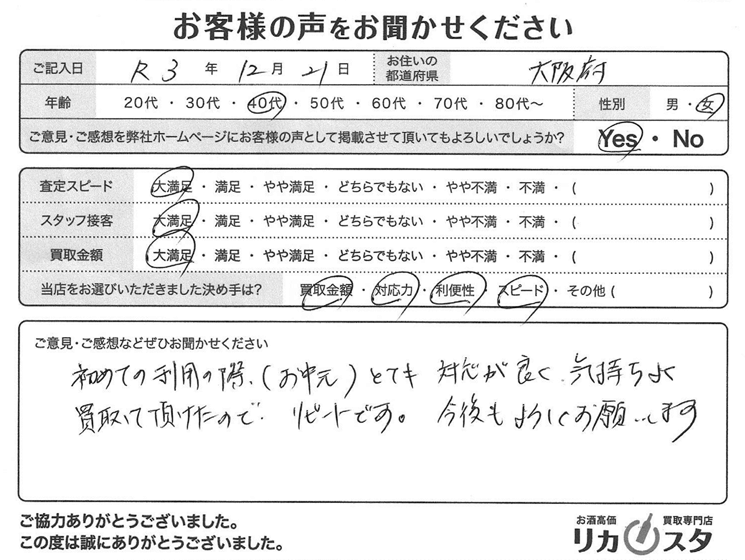 お客様の声をお聞かせください
ご記入日 R3年12月21日 お住いの都道府県 大阪府
年齢 20代・30代・40代・50代・60代・70代・80代〜 性別 男・女
ご意見・ご感想を弊社ホームページにお客様の声として掲載させて頂いてもよろしいでしょうか? Yes・No
査定スピード 大満足・満足・やや満足・どちらでもない・やや不満・不満・( )
スタッフ接客 大満足・満足・やや満足・どちらでもない・やや不満・不満・( )
買取金額 大満足・満足・やや満足・どちらでもない・やや不満・不満・( )
当店をお選びいただきました決め手は? 買取金額・対応力・利便性・スピード・その他( )
ご意見・ご感想などぜひお聞かせください
初めての利用の際、(お中元)とても 対応が良く、気持ちよく
買取って頂けたので、リピートです。今後もよろしくお願いします
ご協力ありがとうございました。
この度は誠にありがとうございました。
お酒高価 買取専門店
リカスタ